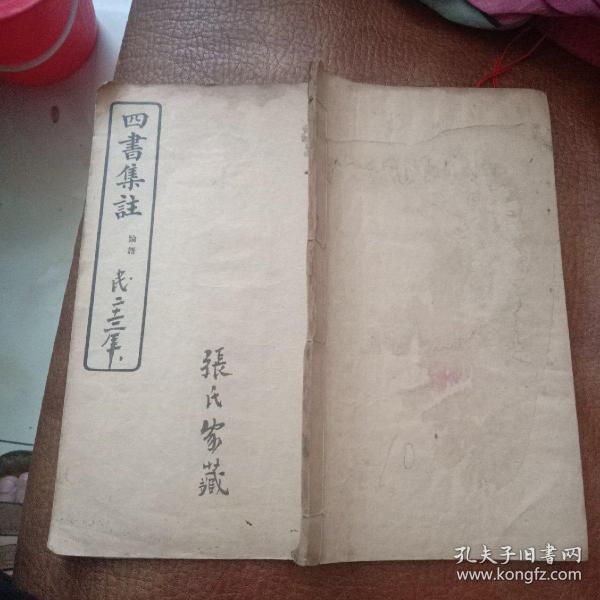 四書集註
論語
民二十三年
張氏家藏
孔夫子旧书网
www.kongfz.com